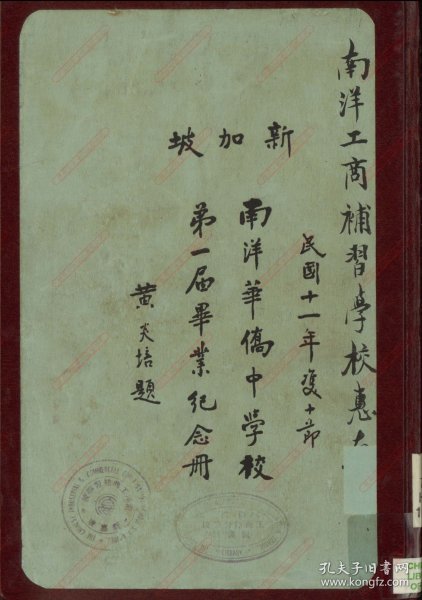 南洋工商補習學校惠存
新加坡
民國十一年雙十節
南洋華僑中學校
第一届畢業紀念冊
黄炎培題
孔夫子旧书网
www.kongfz.com